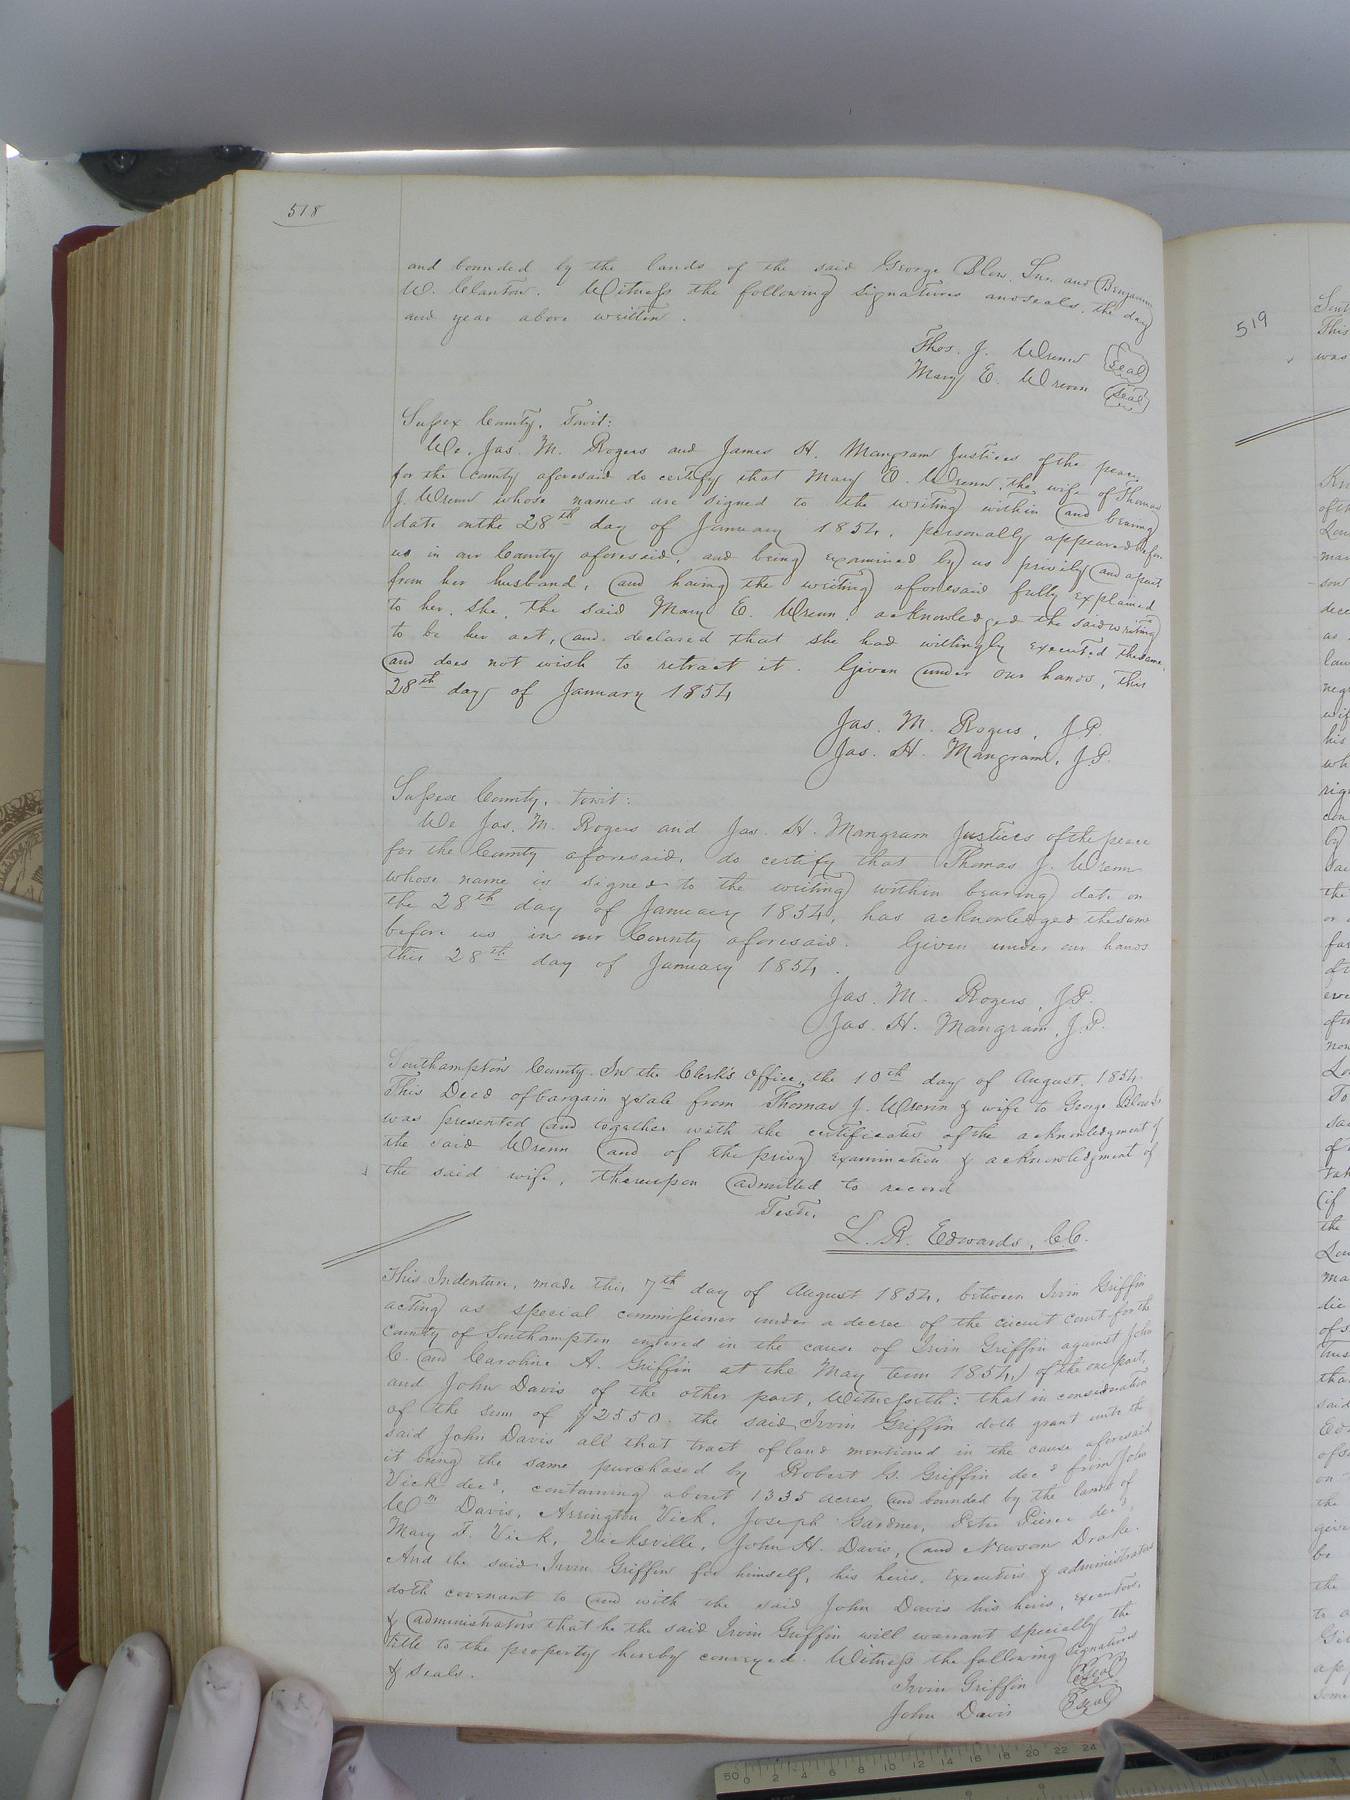 518
and bounded by the lands of the said George Blow. Snr. and Benjamin
W. Clanton. Witness the following signatures and seals, the day
and year above written.
Thos. J. Wrenn (Seal)
Mary E. Wrenn (Seal)
Sussex County, Towit:
We, Jas. M. Rogers and James H. Mangram Justices of the peace
for the County aforesaid do certify that Mary E. Wrenn, the wife of Thomas
J. Wrenn whose names are signed to the writing within and bearing
date on the 28th day of January 1854, personally appeared before
us in our County aforesaid, and being examined by us privily and apart
from her husband, and having the writing aforesaid fully explained
to her, she, the said Mary E. Wrenn, acknowledged the said writing
to be her act, and declared that she had willingly executed the same,
and does not wish to retract it. Given under our hands, this
28th day of January 1854
Jas. M. Rogers, J.P.
Jas. H. Mangram, J.P.
Sussex County, towit:
We Jas. M. Rogers and Jas. H. Mangram Justices of the peace
for the County aforesaid, do certify that Thomas J. Wrenn
whose name is signed to the writing within bearing date on
the 28th day of January 1854, has acknowledged the same
before us in our County aforesaid. Given under our hands
this 28th day of January 1854.
Jas. M. Rogers, J.P.
Jas. H. Mangram, J.P.
Southampton County. In the Clerk's Office, the 10th day of August, 1854.
This Deed of bargain & sale from Thomas J. Wrenn & wife to George Blow
was presented and together with the certificates of the acknowledgment of
the said Wrenn and of the privy examination & acknowledgment of
the said wife, thereupon admitted to record
Teste.
L. R. Edwards, C.C.
This Indenture, made this 7th day of August 1854, between Irvin Griffin
acting as special commissioner under a decree of the circuit court for the
county of Southampton entered in the cause of Irvin Griffin against John
C. and Caroline A. Griffin at the May term 1854,) of the one part,
and John Davis of the other part, Witnesseth: that in consideration
of the sum of $2550. the said Irvin Griffin doth grant unto the
said John Davis all that tract of land mentioned in the cause aforesaid
it being the same purchased by Robert G. Griffin decd from John
Vick decd, containing about 1335 acres, and bounded by the lands of
Wm Davis, Arrington Vick, Joseph Gardner, Peter Pierce decd,
Mary T. Vick, Vicksville, John H. Davis, and Newsom Drake.
And the said Irvin Griffin for himself, his heirs, executors & administrators
doth covenant to and with the said John Davis his heirs, executors,
& administrators that he the said Irvin Griffin will warrant specially the
title to the property hereby conveyed. Witness the following signatures
& seals.
Irvin Griffin (Seal)
John Davis (Seal)
519
This
was